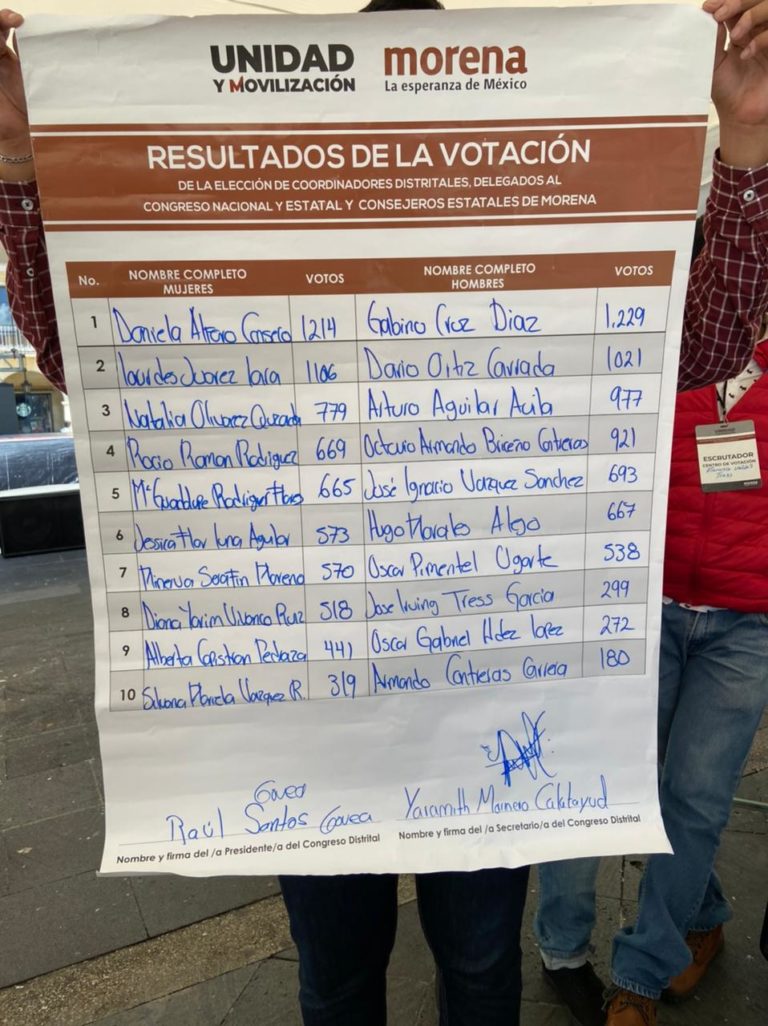 UNIDAD
Y MOVILIZACIÓN
morena
La esperanza de México
RESULTADOS DE LA VOTACIÓN
DE LA ELECCIÓN DE COORDINADORES DISTRITALES, DELEGADOS AL
CONGRESO NACIONAL Y ESTATAL Y CONSEJEROS ESTATALES DE MORENA
No. NOMBRE COMPLETO MUJERES VOTOS NOMBRE COMPLETO HOMBRES VOTOS
1 Daniela 1214 Gabino Cruz Diaz 1.229
2 Lourdes Juarez Lara 1106 Dario Ortiz 1021
3 Natalia Olivarez Quezada 779 Arturo Aguilar Avila 977
4 Rocio Roman Rodriguez 669 Octavio Armando Briceño Contreras 921
5 Mª Guadalupe Rodriguez Flores 665 José Ignacio Vazquez Sanchez 693
6 Jessica Flor Luna Aguilar 573 Hugo Morales Alejo 667
7 Minerva Serafin Moreno 570 Oscar Pimentel Ugarte 538
8 Diana Yarim Vivanco Ruiz 518 Jose Irving Tress Garcia 299
9 Alberta Cristian Pedraza 441 Oscar Gabriel Hdez lopez 272
10 Silvana Mariela Vazquez R. 319 Armando Contreras Carrera 180
Govea
Raúl Santos Govea
Nombre y firma del /a Presidente/a del Congreso Distrital
Yaramith
Nombre y firma del /a Secretario/a del Congreso Distrital
ESCRUTADOR
CENTRO DE VOTACIÓN